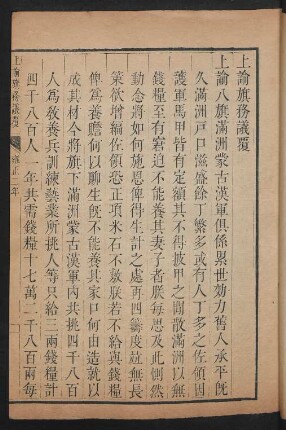 上諭旗務議覆
上諭八旗滿洲蒙古漢軍俱係累世効力舊人承平旣
久滿洲戸口滋盛餘丁繁多或有人丁多之佐領因
護軍馬甲皆有定額其不得披甲之閒散滿洲以無
錢糧至有窘迫不能養其妻子者朕每思及此惻然
動念將如何施恩俾得生計之處再四籌度並無長
策欲增編佐領恐正項米石不敷朕若不給與錢糧
俾為養贍何以聊生旣不能養其家口何由造就以
成其材今將旗下滿洲蒙古漢軍內共挑四千八百
人為敎養兵訓練藝業所挑人等只給三兩錢糧計
四千八百人一年共需錢糧十七萬二千八百兩每
上諭旗務議覆 雍正二年